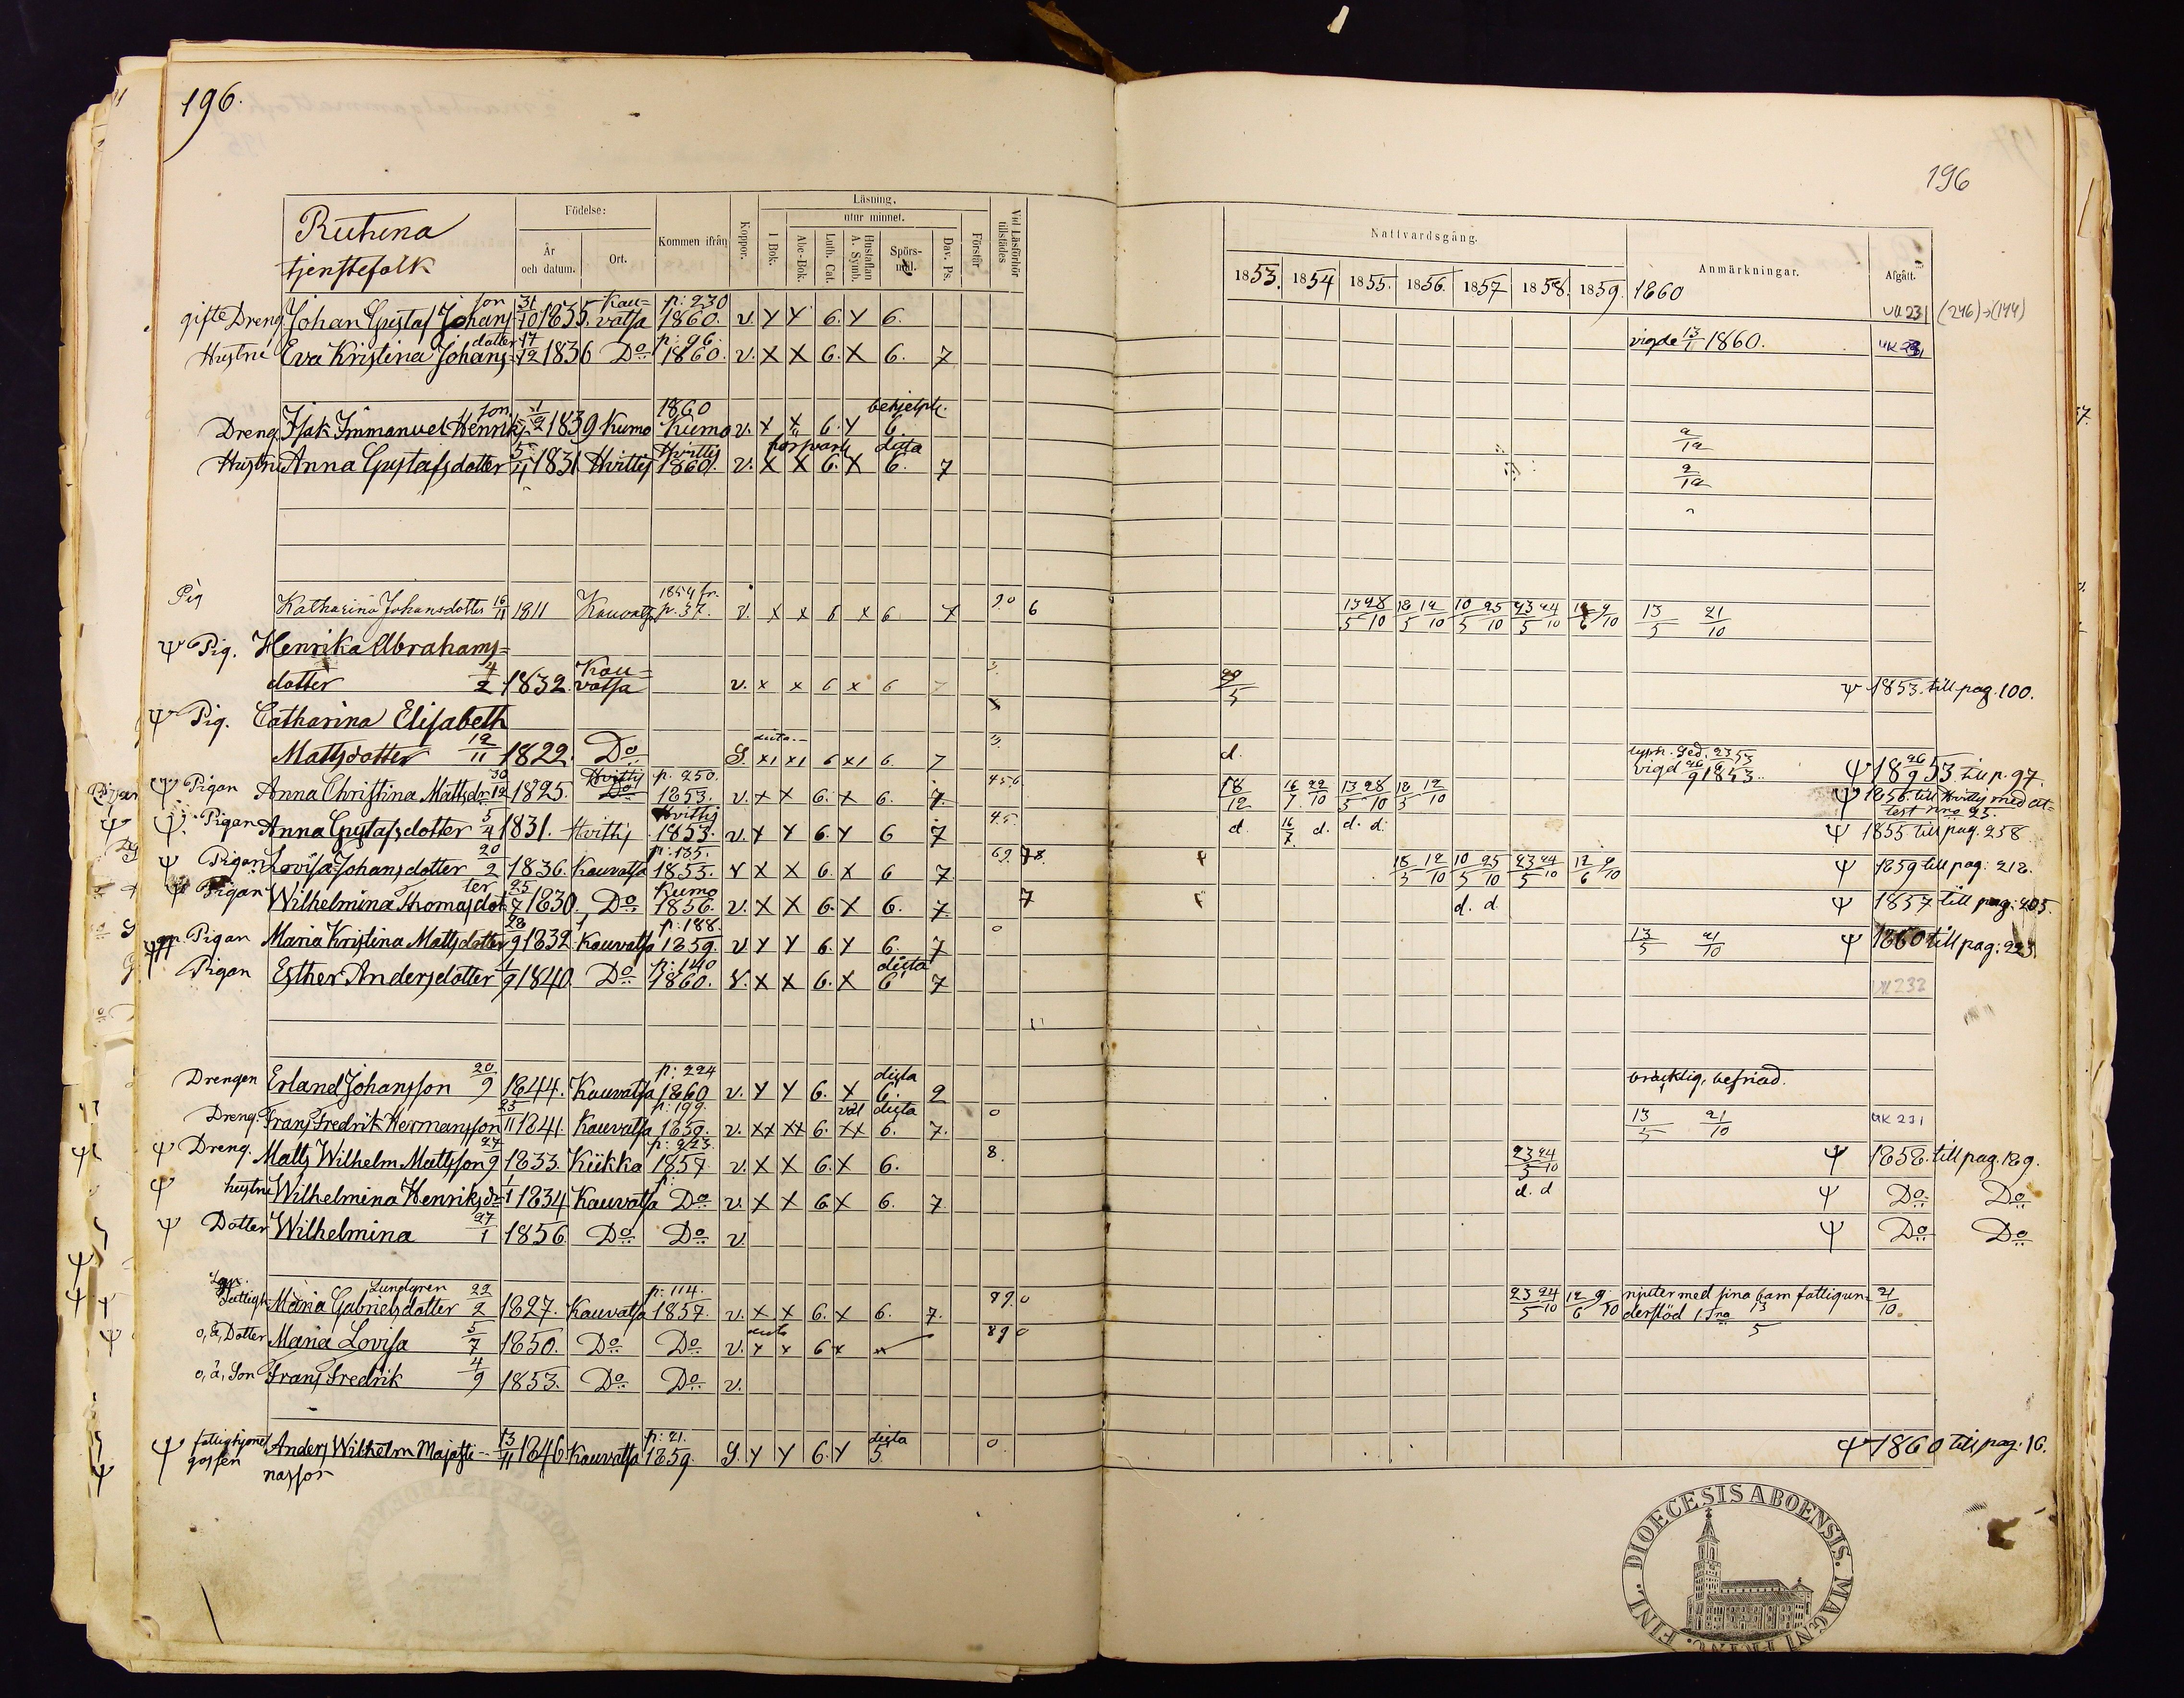 196.
196
Ruhina
tjenstefolk
Födelse:
År och datum.
Ort.
Kommen ifrån
Koppor.
Läsning.
utur minnet.
I Bok.
Abc-Bok.
Luth. Cat.
Hustaflan A. Symb.
Spörsmål.
Dav. Ps.
Förstår
Vid Läsförhör tillstädes
Nattvardsgång.
1853. 1854 1855. 1856. 1857 1858. 1859. 1860
Anmärkningar.
Afgått.
gifte Dreng. Johan Gustaf Johansson 31/10 1835. Kauvatsa p: 230 1860. v. Y Y 6. Y 6. UK 231 (246)→(144)
Hustru Eva Kristina Johansdotter 17/12 1836 Do p: 96. 1860. v. X X 6. X 6. 7 vigde 13/11 1860. UK 231
Dreng Isak Immanuel Henriksson 1839 Kumo 1860 Kumo v. X X 6. Y 6. behjelpl.
Hustru Anna Gustafsdotter 5/4 1831 Hvittis Hvittis 1860. v. X X 6. X 6. 7
Pig Katharina Johansdotter 16/11 1811 Kauvatsa 1854 fr. p. 37. v. x x 6 x 6 7 90 6 13 28/5 10 18 12/5 10 10 25/5 10 23 24/5 10 12 9/6 10 13/5 21/10
Ψ Pig. Henrika Abrahams=
dotter 4/2 1832. Kauvatsa v. x x 6 x 6 7 3. Ψ 1853. till pag. 100.
Ψ Pig. Catharina Elisabeth
Mattsdotter 12/11 1822. Do S. x1 x1 6 x1 6. 7 3. d. vigd 1853. Ψ 1853 till p. 97.
Ψ Pigan Anna Christina Mattsdr 30/12 1825. Hvittis p. 250. 1853. v. X X 6. X 6. 7. 456 18/12 16/7 22/10 13 28/5 10 18 12/5 10 Ψ 1856 till Hvittis med attest nro 25.
Ψ Pigan Anna Gustafsdotter 5/4 1831. Hvittis Hvittis 1853. v. Y Y 6. Y 6 7 45. d. 16/7 d. d. d. Ψ 1855 till pag. 258
Ψ Pigan Lovisa Johansdotter 20/2 1836. Kauvatsa p: 185. 1855. v X X 6. X 6 7 69. 78. 18 12/5 10 10 25/5 10 23 24/5 10 12 9/6 10 Ψ 1859 till pag: 212.
Ψ Pigan Wilhelmina Thomasdotter 25/7 1830. Do Kumo 1856. v. X X 6. X 6. 7 7 d. d. Ψ 1857 till pag: 205.
Pigan Maria Kristina Mattsdotter 28/9 1832. Kauvatsa p: 188. 1859. v Y Y 6. Y 6. 7 0 13/5 21/10 Ψ 1860 till pag: 223.
Pigan Esther Andersdotter 1/9 1840. Do p: 140 1860. v. X X 6. X 6 7 UK 232
Drengen Erland Johansson 20/9 1844. Kauvatsa p: 224 1860 v. Y Y 6. X 6. 2 bräcklig, befriad.
Dreng. Frans Fredrik Hermansson 23/11 1841. Kauvatsa p: 199. 1859. v. XX XX 6. XX 6. 7. 0 13/5 21/10 UK 231
Ψ Dreng. Matts Wilhelm Mattsson 27/9 1833. Kiikka p: 223. 1857. v. X X 6. X 6. 8. 23 24/5 10 Ψ 1858. till pag. 189.
Ψ hustru Wilhelmina Henriksdr 1/1 1834 Kauvatsa Do v. X X 6 X 6. 7. d. d Ψ Do Do
Ψ Dotter Wilhelmina 27/1 1856. Do Do v. Ψ Do Do
Lundgren
Maria Gabrielsdotter 22/2 1827. Kauvatsa p: 114. 1857. v. X X 6. X 6. 7. 89. 0 23 24/5 10 12 9/6 10 njuter med sina barn fattigunderstöd 13/5 21/10.
o, ä, Dotter Maria Lovisa 5/7 1850. Do Do v. Y x 6 x 89 0
o, ä, Son Frans Fredrik 4/9 1853. Do Do v.
Ψ fattighjonet gossen Anders Wilhelm 13/11 1846. Kauvatsa p: 21. 1859. S. Y Y 6. Y 5. 0 Ψ 1860 till pag. 16.
FINL. DIOECESIS ABOENSIS. MAGNI PRINC.